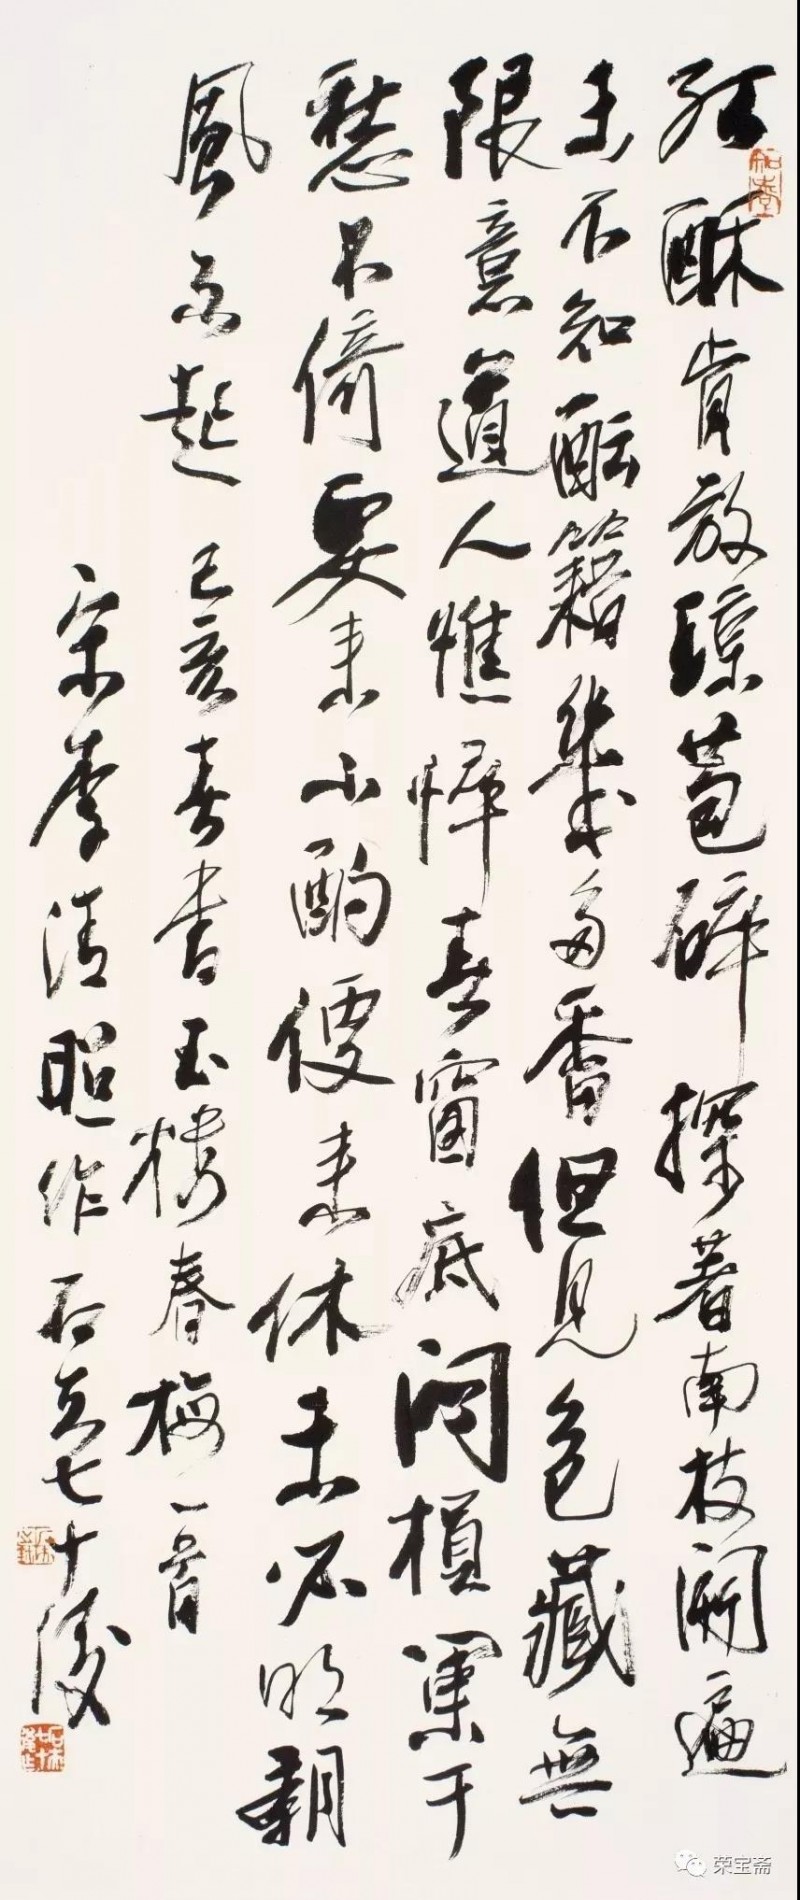 紅酥肯放瓊苞碎探著南枝開遍
未不知醖籍幾多香但見包藏無
限意道人憔悴春窗底闷損闌干
愁不倚要来小酌便来休未必明朝
風不起 己亥春書玉樓春梅一首
宋李清照作 石七十後
荣宝斋